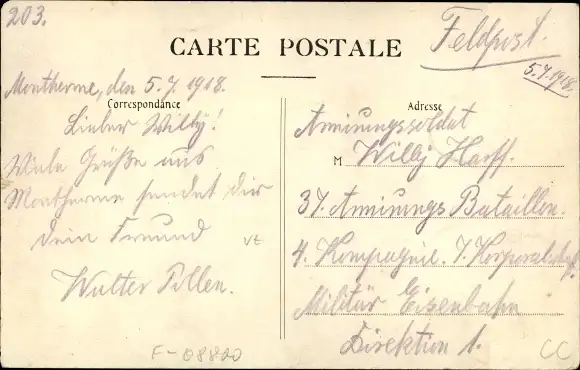 203.
CARTE POSTALE
Feldpost.
5.7.1918.
Correspondance
Montherme, den 5.7.1918.
Lieber Willy!
Viele Grüße aus
Montherme sendet dir
dein Freund
Walter Pillen.
vz
F-08800
Adresse
Armirungssoldat
M Willy Harff.
37. Armirungs Bataillon.
4. Kompagnie. 7. Korporalschaf.
Militär Eisenbahn
Direktion 1.
CC